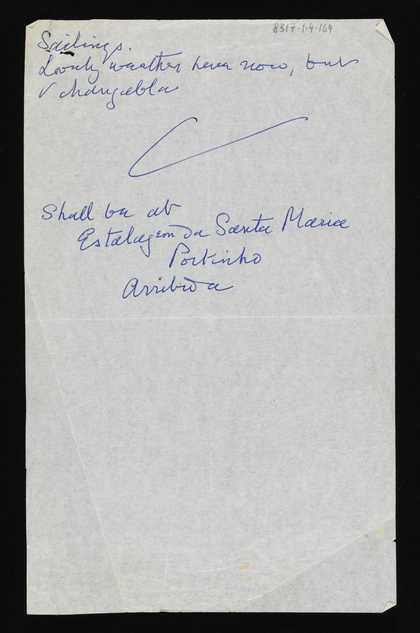 8317.1.4.164
Sailings.
Lovely weather here now, but
v changeable
Shall be at
Estalagem da Santa Maria
Portinho
Arribida